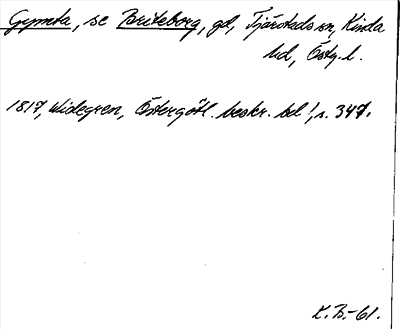 Gymta, se Briteborg, gd, Tjärstads sn, Kinda
hd, Östg. l.
1817, Widegren, Östergötl. beskr. bd 1, s. 347.
K.B.-61.